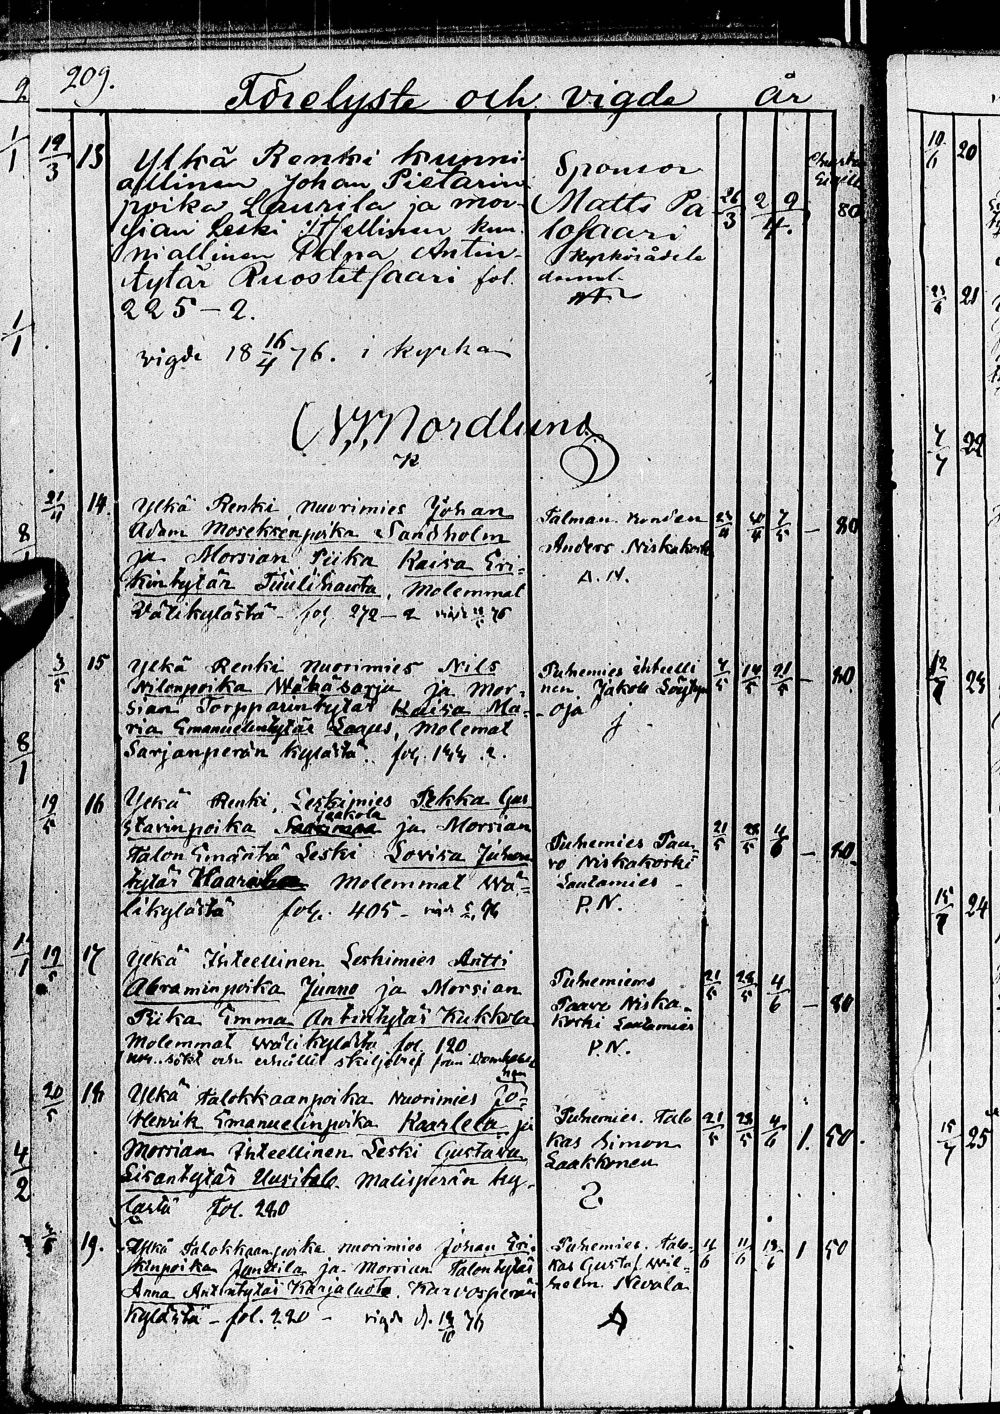 209.
Förelyste och vigde år
19/3 13 Ylkä Renki kunni-
allinen Johan Pietarin
poika Laurila ja mor-
sian Leski itsellinen kun-
niallinen Edna Antin-
tytär Ruostetsaari fol.
225-2.
Sponsor
Matts Pa
losaari
26/3 2/4 9/4 80
vigde 18 16/4 76. i kyrka
Nordlund
21/4 14. Ylkä Renki, nuorimies Johan
Adam Moseksenpoika Sandholm
ja Morsian Piika Kaisa Eri-
kintytär Tuulihauta, Molemmat
Välikylästä - fol 272-2
Talman bonden
Anders Niskakoski
A. N.
23/4 30/4 7/5 - 80
3/5 15 Ylkä Renki Nuorimies Nils
Nilsnpoika Wähäsarja ja Mor-
sian Torpparintytär Kaisa Ma-
ria Emanuelintytär Laajus, Molemat
Sarjanperän kylästä. fol. 144.2.
Puhemies ihtselli
nen Jakob Löytyn
oja
7/5 14/5 21/5 - 80.
19/5 16 Ylkä Renki, Leskimies Pekka Gus
Jaakola
tavinpoika ja Morsian
Talon Emäntä Leski Lovisa Juhon
tytär Molemmat Wä-
likylästä fol. 405-
Puhemies Paa-
vo Niskakoski
Lautamies -
P.N.
21/5 28/5 4/6 - 80.
19/5 17 Ylkä Ihteellinen Leskimies Antti
Abraminpoika Junno ja Morsian
Piika Emma Antintytär Kukkola
Molemmat Wälikylästä fol. 120
och erhållit skiljobref från Domkapitel
Puhemiems
Paavo Niska-
koski Lautamies
P.N.
21/5 28/5 4/6 - 80
20/5 18 Ylkä Talokkaanpoika Nuorimies Jo-
han
Henrik Emanuelinpoika Kaarlela ja
Morsian Ihteellinen Leski Gustava
Lisantytär Uusitalo Malisperän ky-
lästä fol. 280
Puhemies. Talo
kas Simon
Laakkonen
21/5 28/5 4/6 1. 50.
19. Ylkä Talokkaanpoika nuorimies Johan Eri-
kinpoika Junttila ja Morsian Talontytär
Anna Antintytär Karjaluoto, Karvosperän
Kylästä - fol. 220 - vigde d. 13/10 76
Puhemies. Talo-
kas Gustaf Wil-
helm Nevala
4/6 11/6 1 50
10/6 20
21
7/7 22
12/7 23
15/7 24
15/7 25